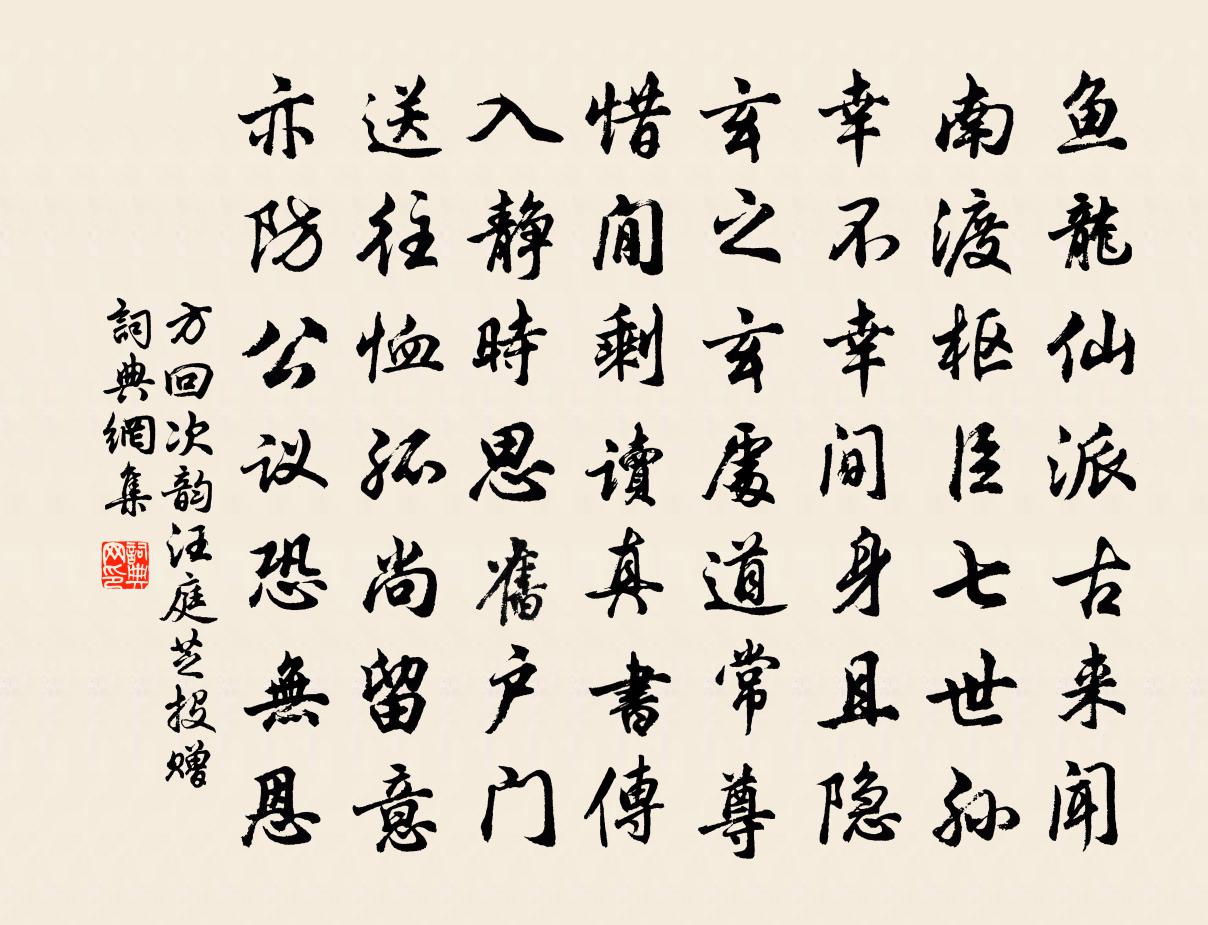 鱼龍仙派古来闻
南渡枢臣七世孙
幸不幸间身且隐
玄之玄處道常尊
惜閒剩讀真書傳
入静時思舊户门
送往恤孤尚留意
亦防公议恐無恩
方回次韵汪庭芝投赠
詞典網集
詞典网印